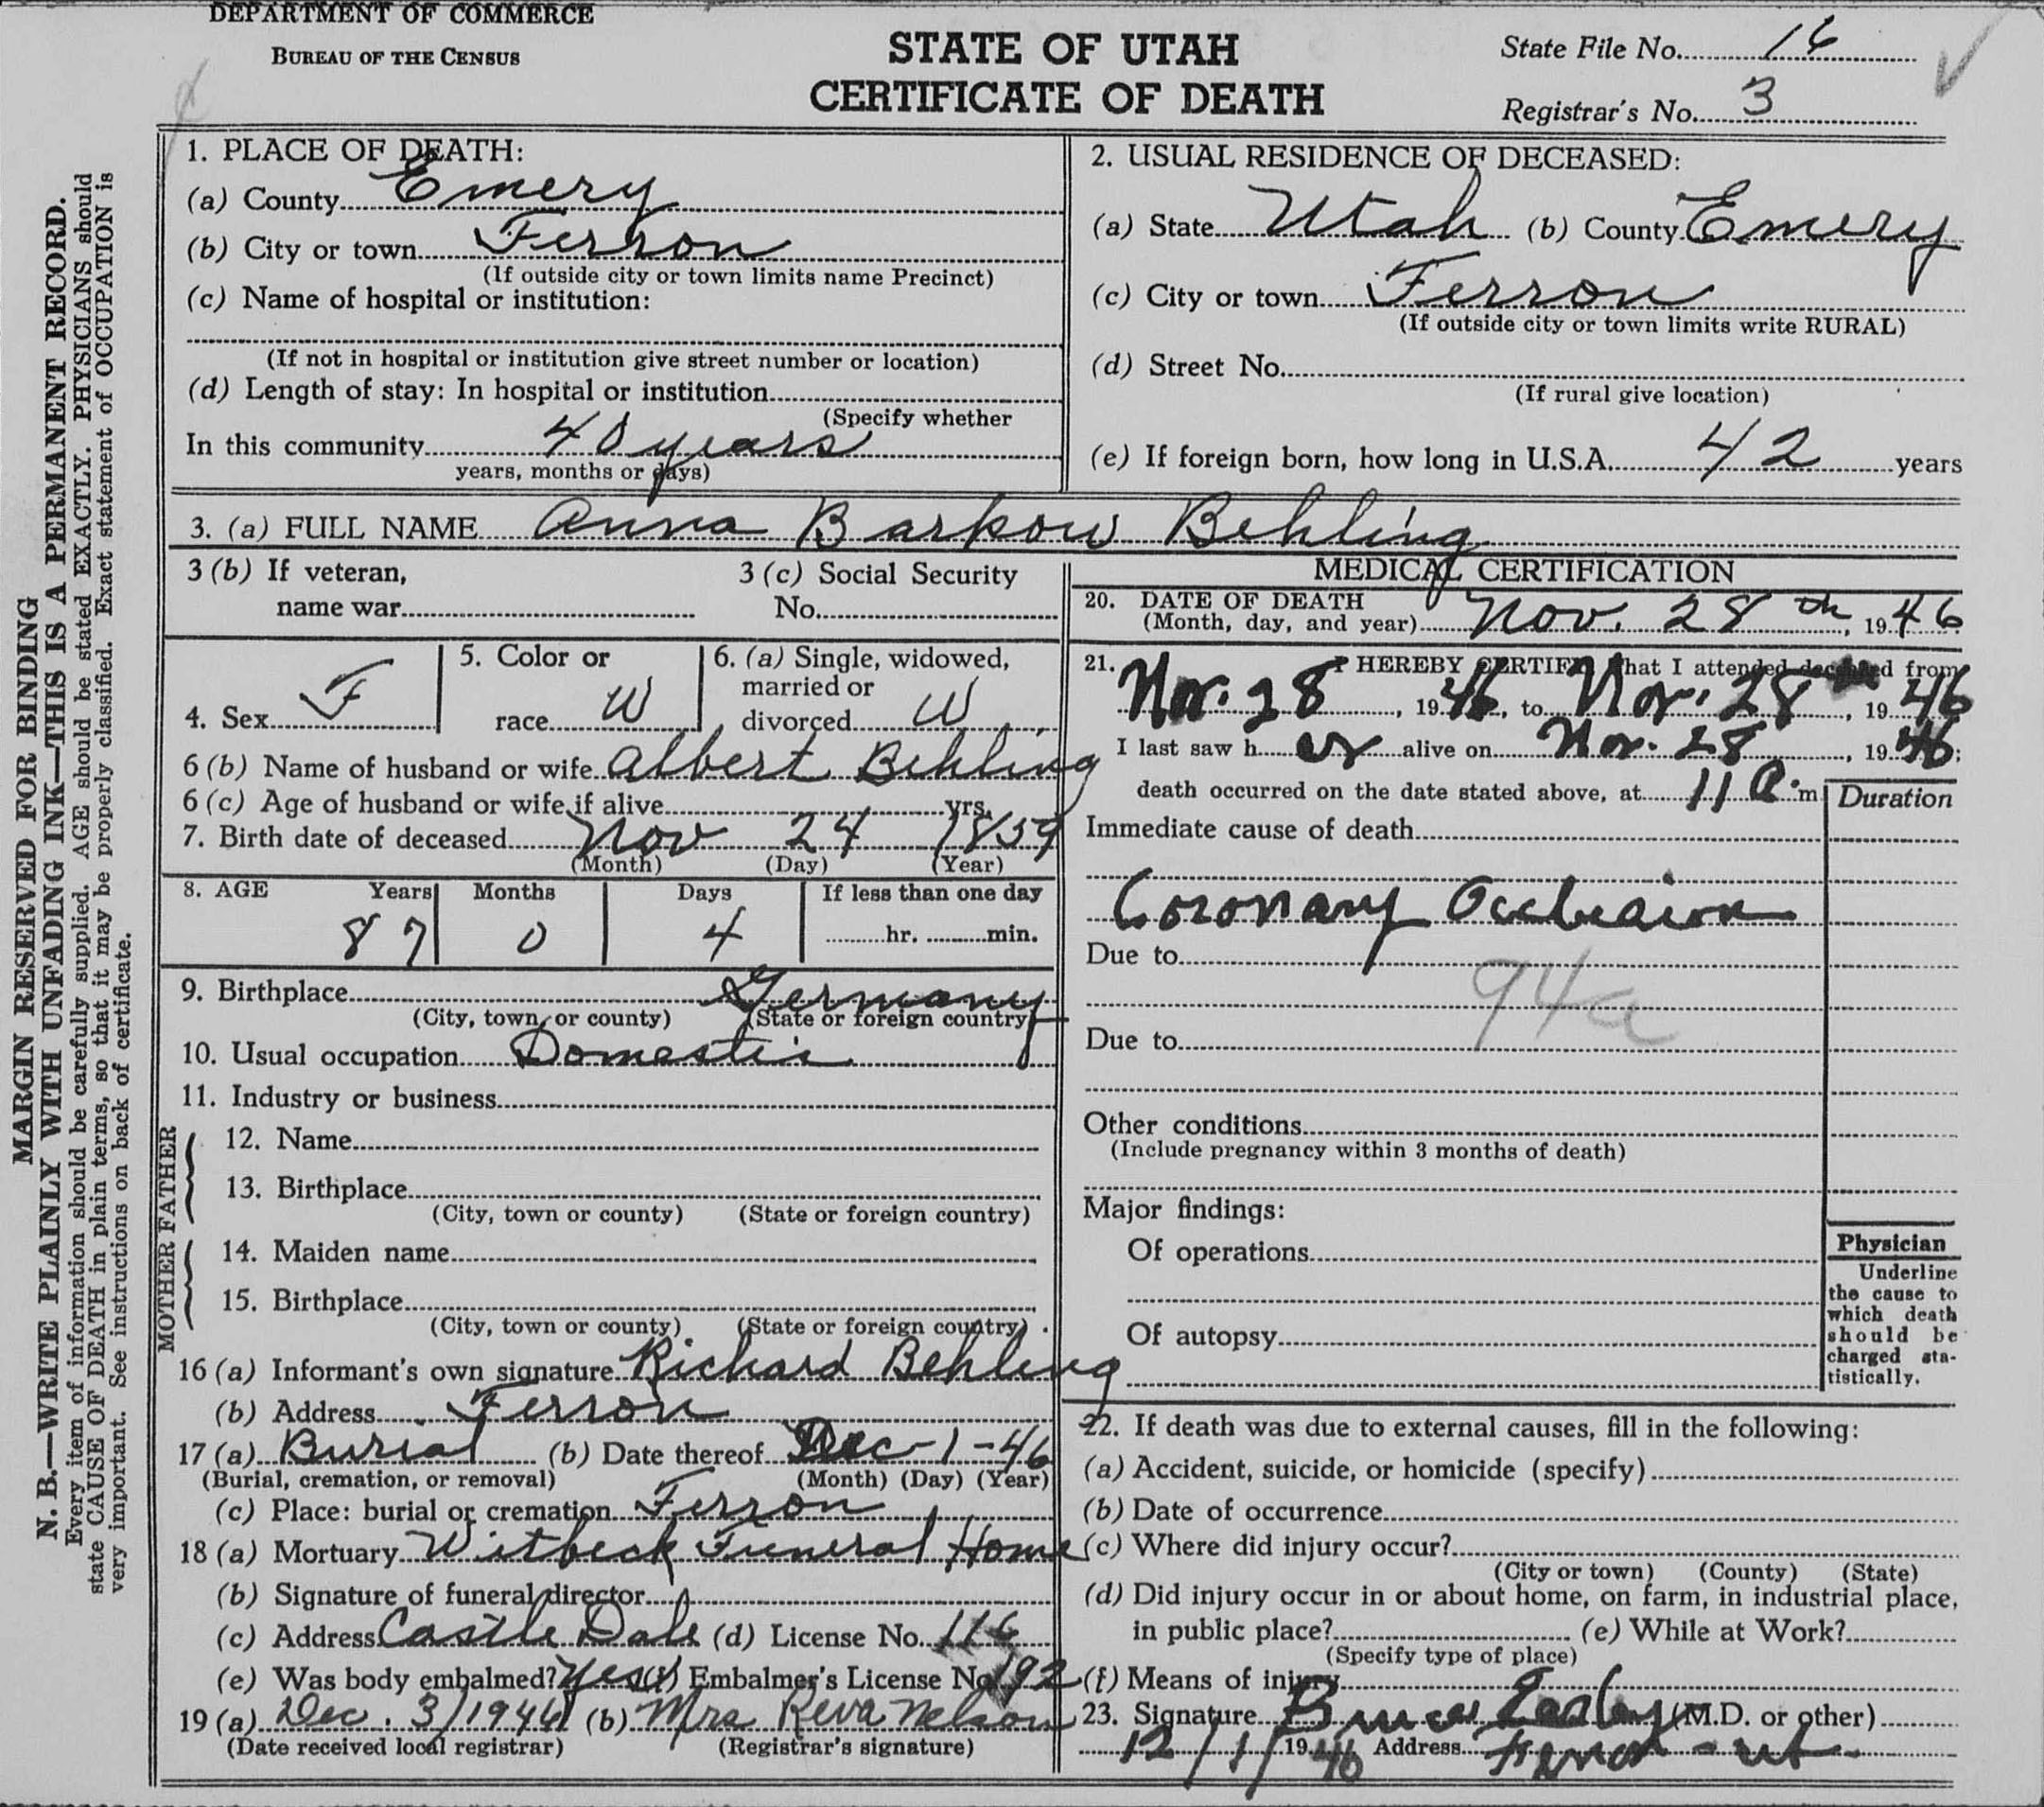 DEPARTMENT OF COMMERCE
BUREAU OF THE CENSUS
STATE OF UTAH
CERTIFICATE OF DEATH
State File No. 16
Registrar's No. 3
MARGIN RESERVED FOR BINDING
N. B.—WRITE PLAINLY WITH UNFADING INK—THIS IS A PERMANENT RECORD.
Every item of information should be carefully supplied. AGE should be stated EXACTLY. PHYSICIANS should
state CAUSE OF DEATH in plain terms, so that it may be properly classified. Exact statement of OCCUPATION is
very important. See instructions on back of certificate.
1. PLACE OF DEATH:
(a) County Emery
(b) City or town Ferron
(If outside city or town limits name Precinct)
(c) Name of hospital or institution:
(If not in hospital or institution give street number or location)
(d) Length of stay: In hospital or institution
(Specify whether
In this community 40 years
years, months or days)
2. USUAL RESIDENCE OF DECEASED:
(a) State Utah (b) County Emery
(c) City or town Ferron
(If outside city or town limits write RURAL)
(d) Street No.
(If rural give location)
(e) If foreign born, how long in U.S.A. 42 years
3. (a) FULL NAME Anna Barkow Behling
3 (b) If veteran,
name war
3 (c) Social Security
No.
4. Sex F
5. Color or
race W
6. (a) Single, widowed,
married or
divorced W
6 (b) Name of husband or wife Albert Behling
6 (c) Age of husband or wife if alive yrs.
7. Birth date of deceased Nov 24 1859
(Month) (Day) (Year)
8. AGE Years Months Days If less than one day
87 0 4 hr. min.
9. Birthplace Germany
(City, town, or county) (State or foreign country)
10. Usual occupation Domestic
11. Industry or business
FATHER
12. Name
13. Birthplace
(City, town or county) (State or foreign country)
MOTHER
14. Maiden name
15. Birthplace
(City, town or county) (State or foreign country)
16 (a) Informant's own signature Richard Behling
(b) Address Ferron
17 (a) Burial (b) Date thereof Dec-1-46
(Burial, cremation, or removal) (Month) (Day) (Year)
(c) Place: burial or cremation Ferron
18 (a) Mortuary Witbeck Funeral Home
(b) Signature of funeral director
(c) Address Castle Dale (d) License No. 116
(e) Was body embalmed? Yes (f) Embalmer's License No. 192
19 (a) Dec. 3/1946 (b) Mrs Reva Nelson
(Date received local registrar) (Registrar's signature)
MEDICAL CERTIFICATION
20. DATE OF DEATH
(Month, day, and year) Nov. 28th, 1946
21. I HEREBY CERTIFY, That I attended deceased from
Nov. 28, 1946, to Nov. 28, 1946
I last saw her alive on Nov. 28, 1946;
death occurred on the date stated above, at 11 P.m
Duration
Immediate cause of death
Coronary Occlusion
Due to
94a
Due to
Other conditions
(Include pregnancy within 3 months of death)
Major findings:
Of operations
Of autopsy
Physician
Underline
the cause to
which death
should be
charged sta-
tistically.
22. If death was due to external causes, fill in the following:
(a) Accident, suicide, or homicide (specify)
(b) Date of occurrence
(c) Where did injury occur?
(City or town) (County) (State)
(d) Did injury occur in or about home, on farm, in industrial place,
in public place? (e) While at Work?
(Specify type of place)
(f) Means of injury
23. Signature Bruce Easley (M.D. or other)
12/1/1946 Address Ferron - ut.